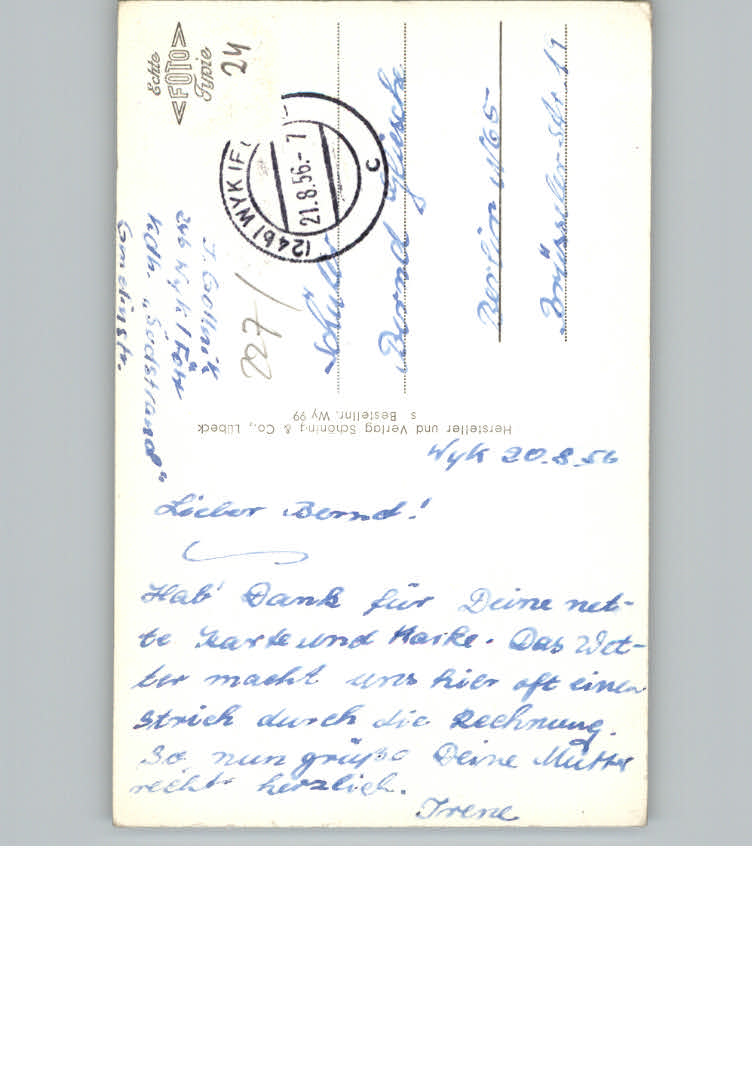 Echte
<FOTO>
Typie
24
(24b) WYK (F
21.8.56.- 7
c
J. Gollnik
24b Wyk / Föhr
Kdh. "Südstrand"
Gmelinstr.
227/
Schüler
Bernd
Berlin N65
Brüsseler Str. 19
Hersteller und Verlag Schöning & Co., Lübeck
s Bestellnr. Wy 99
Wyk 20.8.56
Lieber Bernd!
Hab' Dank für Deine net-
te Karte und Marke. Das Wet-
ter macht uns hier oft einen
Strich durch die Rechnung.
So nun grüße Deine Mutter
recht herzlich.
Irene